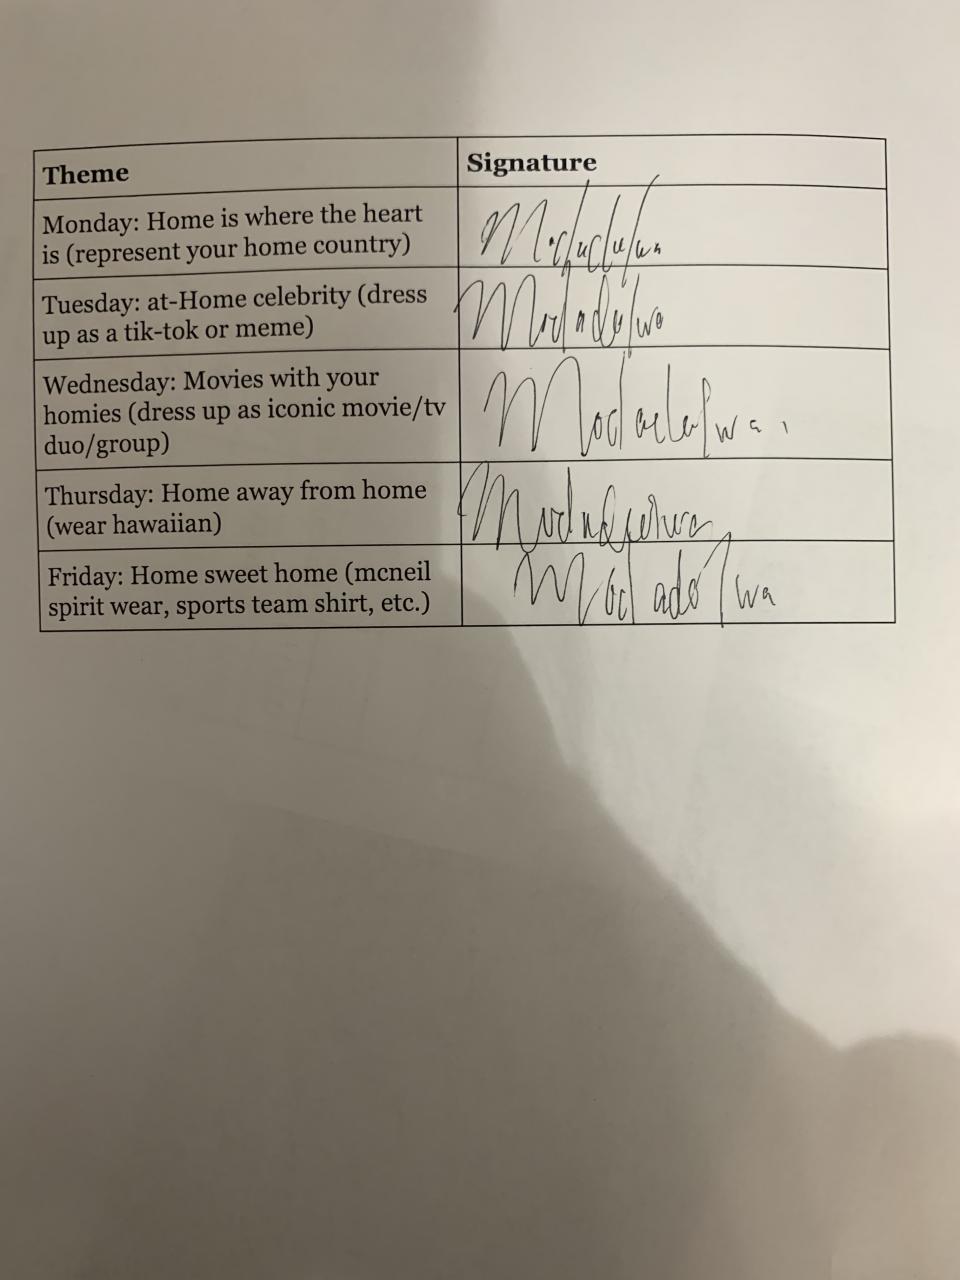 Theme
Signature
Monday: Home is where the heart
is (represent your home country)
Tuesday: at-Home celebrity (dress
up as a tik-tok or meme)
Wednesday: Movies with your
homies (dress up as iconic movie/tv
duo/group)
Thursday: Home away from home
(wear hawaiian)
Friday: Home sweet home (mcneil
spirit wear, sports team shirt, etc.)